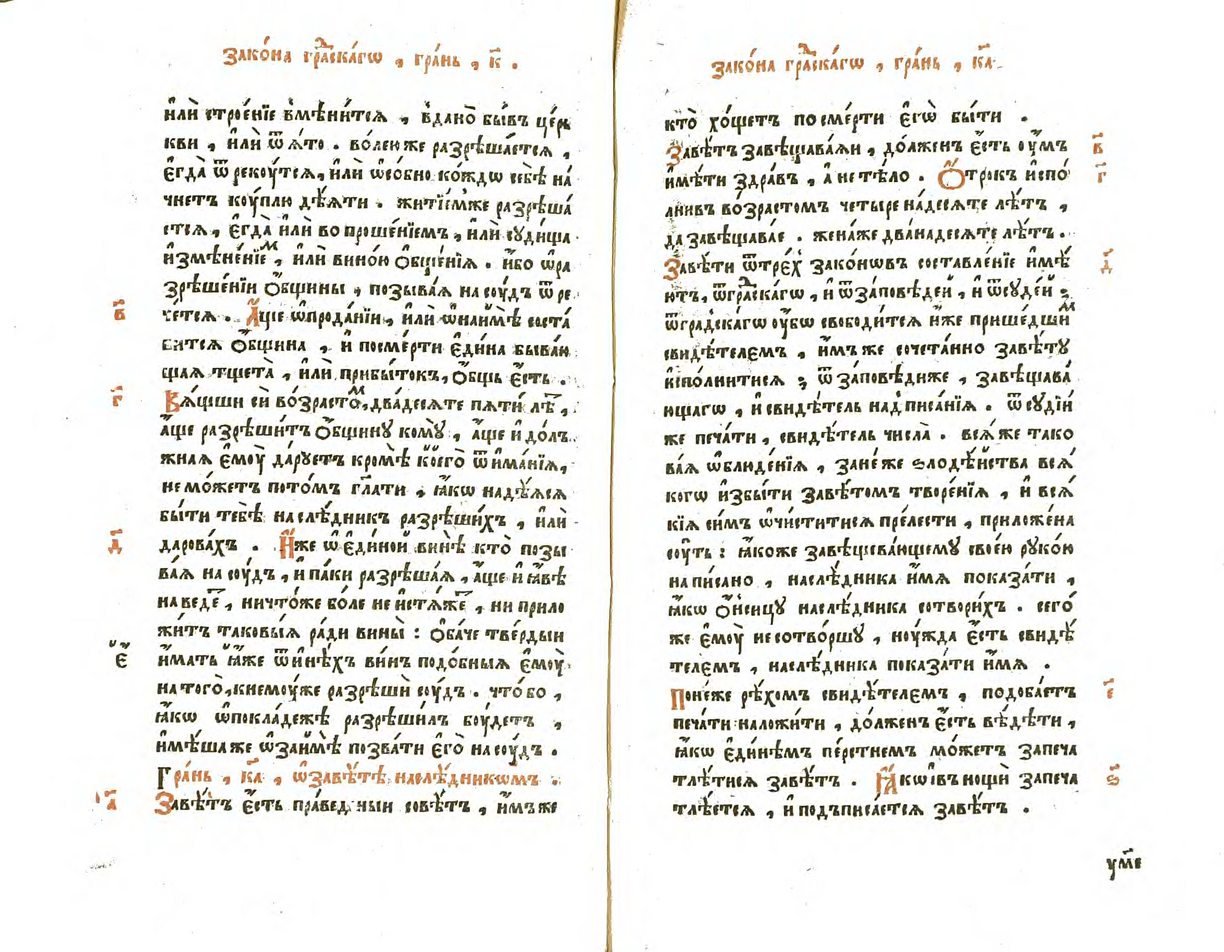 Зако́на гра́дскагѡ , гра́нь , к҃ .
и҆лѝ строе́нїе вмѣни́тсѧ , вдано̀ бы́въ це́рк
кви , и҆лѝ ѿѧ́то . во́лею же разрѣша́етсѧ ,
є҆гда̀ ѿреко́утсѧ, и҆лѝ ѡ҆со́бно ко́ждѡ себѣ̀ на́
чнетъ коу́плю дѣ́ѧти . житїе́мже разрѣша́
етсѧ , є҆гда̀ и҆лѝ во проше́нїемъ , и҆лѝ сꙋди́ща
и҆змѣне́нїемъ , и҆лѝ вино́ю ѻ҆бще́нїѧ . и҆́бо ѡ҆ра
зрѣше́нїи ѻ҆́бщины , позыва́ѧ на со́удъ ѿре
че́тсѧ . А҆́ще ѡ҆прода́нїи , и҆лѝ ѡ҆на́имѣ соста́
витсѧ ѻ҆́бщина , и҆ посме́рти є҆ди́на быва́ю
щаѧ тщета̀ , и҆лѝ прибы́токъ, ѻ҆́бщь є҆́сть .
Вѧ́щши сѝй во́зрастомъ, два́десѧте пѧтѝ лѣ́тъ ,
а҆́ще разрѣши́тъ ѻ҆́бщинꙋ комꙋ̀ , а҆́ще и҆ до́лъ
жнаѧ є҆моу̀ да́рꙋетъ кромѣ̀ ко́его ѿима́нїѧ ,
не мо́жетъ пото́мъ гл҃ати , ꙗ҆́кѡ надѣ́ѧсѧ
бы́ти тебѣ̀ наслѣ́дникъ разрѣши́хъ , и҆лѝ
дарова́хъ . И҆́же ѡ҆ є҆ди́ной винѣ̀ кто̀ позы
ва́ѧ на со́удъ , и҆ па́ки разрѣша́ѧ , а҆́ще и҆ ꙗ҆́вѣ
наведе́тъ , ничто́же бо́ле не и҆стѧ́жетъ , ни прило
жи́тъ таковы́ѧ ра́ди вины̀ : ѻ҆ба́че тве́рдыи
и҆́мать ꙗ҆́же ѿи́нѣхъ ви́нъ подо́бныѧ є҆моу̀
на того̀, к немоу́же разрѣшѝ со́удъ . что́ бо ,
ꙗ҆́кѡ ѡ҆покла́дежѣ разрѣши́лъ боу́детъ ,
и҆мѣ́ша же ѡ҆за́ймѣ позва́ти є҆го̀ на со́удъ .
Гра́нь , ка҃ , ѡ҆завѣ́тѣ наслѣ́дникѡмъ .
Завѣ́тъ є҆́сть пра́ведный совѣ́тъ , и҆́мъже
в҃
г҃
д҃
є҃
а҃
Зако́на гра́дскагѡ , гра́нь , ка҃ .
кто̀ хо́щетъ по сме́рти є҆гѡ̀ бы́ти .
Завѣ́тъ завѣщава́ѧи , до́лженъ є҆́сть оу҆́мъ
и҆мѣ́ти здра́въ , а҆ не тѣ́ло . Ѻ҆́трокъ и҆спо́
лнивъ во́зрастомъ четы́ре на́десѧте лѣ́тъ ,
да завѣщава́етъ . жена́же двана́десѧте лѣ́тъ .
Завѣ́ти ѿтре́хъ зако́нѡвъ составле́нїе и҆мѣ́
ютъ, ѿгра́дскагѡ , и҆ ѿза́повѣдей , и҆ ѿсꙋде́й ;
ѿгра́дскагѡ оу҆́бѡ свободи́тсѧ и҆́же прише́дшимъ
свидѣ́телемъ , и҆́мъ же сочета́нно завѣ́тꙋ
и҆спо́лнитисѧ ; ѿ за́повѣди же , завѣщава́
ющагѡ , и҆ свидѣ́тель надписа́нїѧ . ѿ сꙋді́й
же печа́ти , свидѣ́тель числа̀ . всѧ́ же тако
ва́ѧ ѡ҆блюде́нїѧ , зане́же ѕлодѣ́йства всѧ́
когѡ и҆збы́ти завѣ́томъ творе́нїѧ , и҆ всѧ́
кїѧ си́мъ ѡ҆чи́ститисѧ пре́лести , приложе́на
со́уть : ꙗ҆́коже завѣщева́ющемꙋ свое́ю рꙋко́ю
написано , наслѣ́дника и҆́мѧ показа́ти ,
ꙗ҆́кѡ ѻ҆́нсицꙋ наслѣ́дника сотвори́хъ . сего́
же є҆моу̀ не сотво́ршꙋ , ноу́жда є҆́сть свидѣ́
телемъ , наслѣ́дника показа́ти и҆́мѧ .
Поне́же рѣ́хомъ свидѣ́телемъ , подоба́етъ
печа́ти наложи́ти , до́лженъ є҆́сть вѣ́дѣти ,
ꙗ҆́кѡ є҆ди́нѣмъ пе́рстнемъ мо́жетъ запеча
тлѣ́тисѧ завѣ́тъ . Ꙗ҆́кѡ і҆ в нощѝ запеча
тлѣ́етсѧ , и҆ подъписа́етсѧ завѣ́тъ .
в҃
г҃
д҃
є҃
ѕ҃
ᲂумє